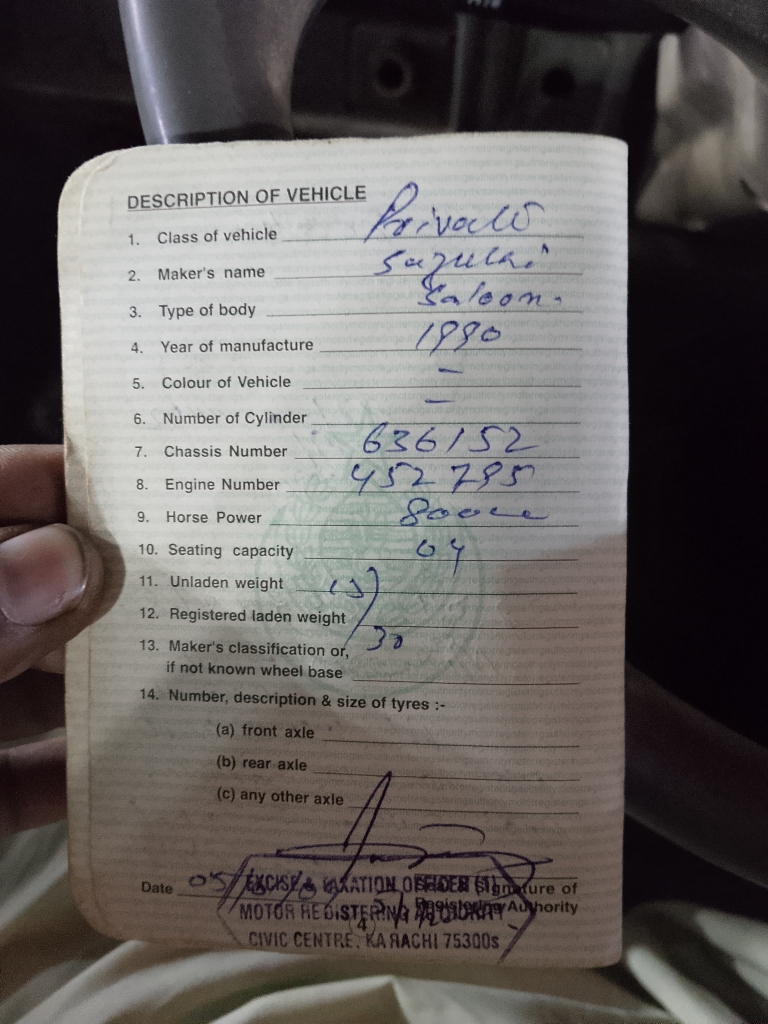 DESCRIPTION OF VEHICLE
1. Class of vehicle Private
2. Maker's name Suzuki
3. Type of body Saloon.
4. Year of manufacture 1990
5. Colour of Vehicle –
6. Number of Cylinder –
7. Chassis Number 636152
8. Engine Number 452795
9. Horse Power 800cc
10. Seating capacity 04
11. Unladen weight
12. Registered laden weight
13. Maker's classification or, 30
if not known wheel base
14. Number, description & size of tyres :-
(a) front axle
(b) rear axle
(c) any other axle
Date 05/
Signature of
Registering Authority
EXCISE & TAXATION OFFICER
MOTOR REGISTERING AUTHORITY
4
CIVIC CENTRE, KARACHI 75300s